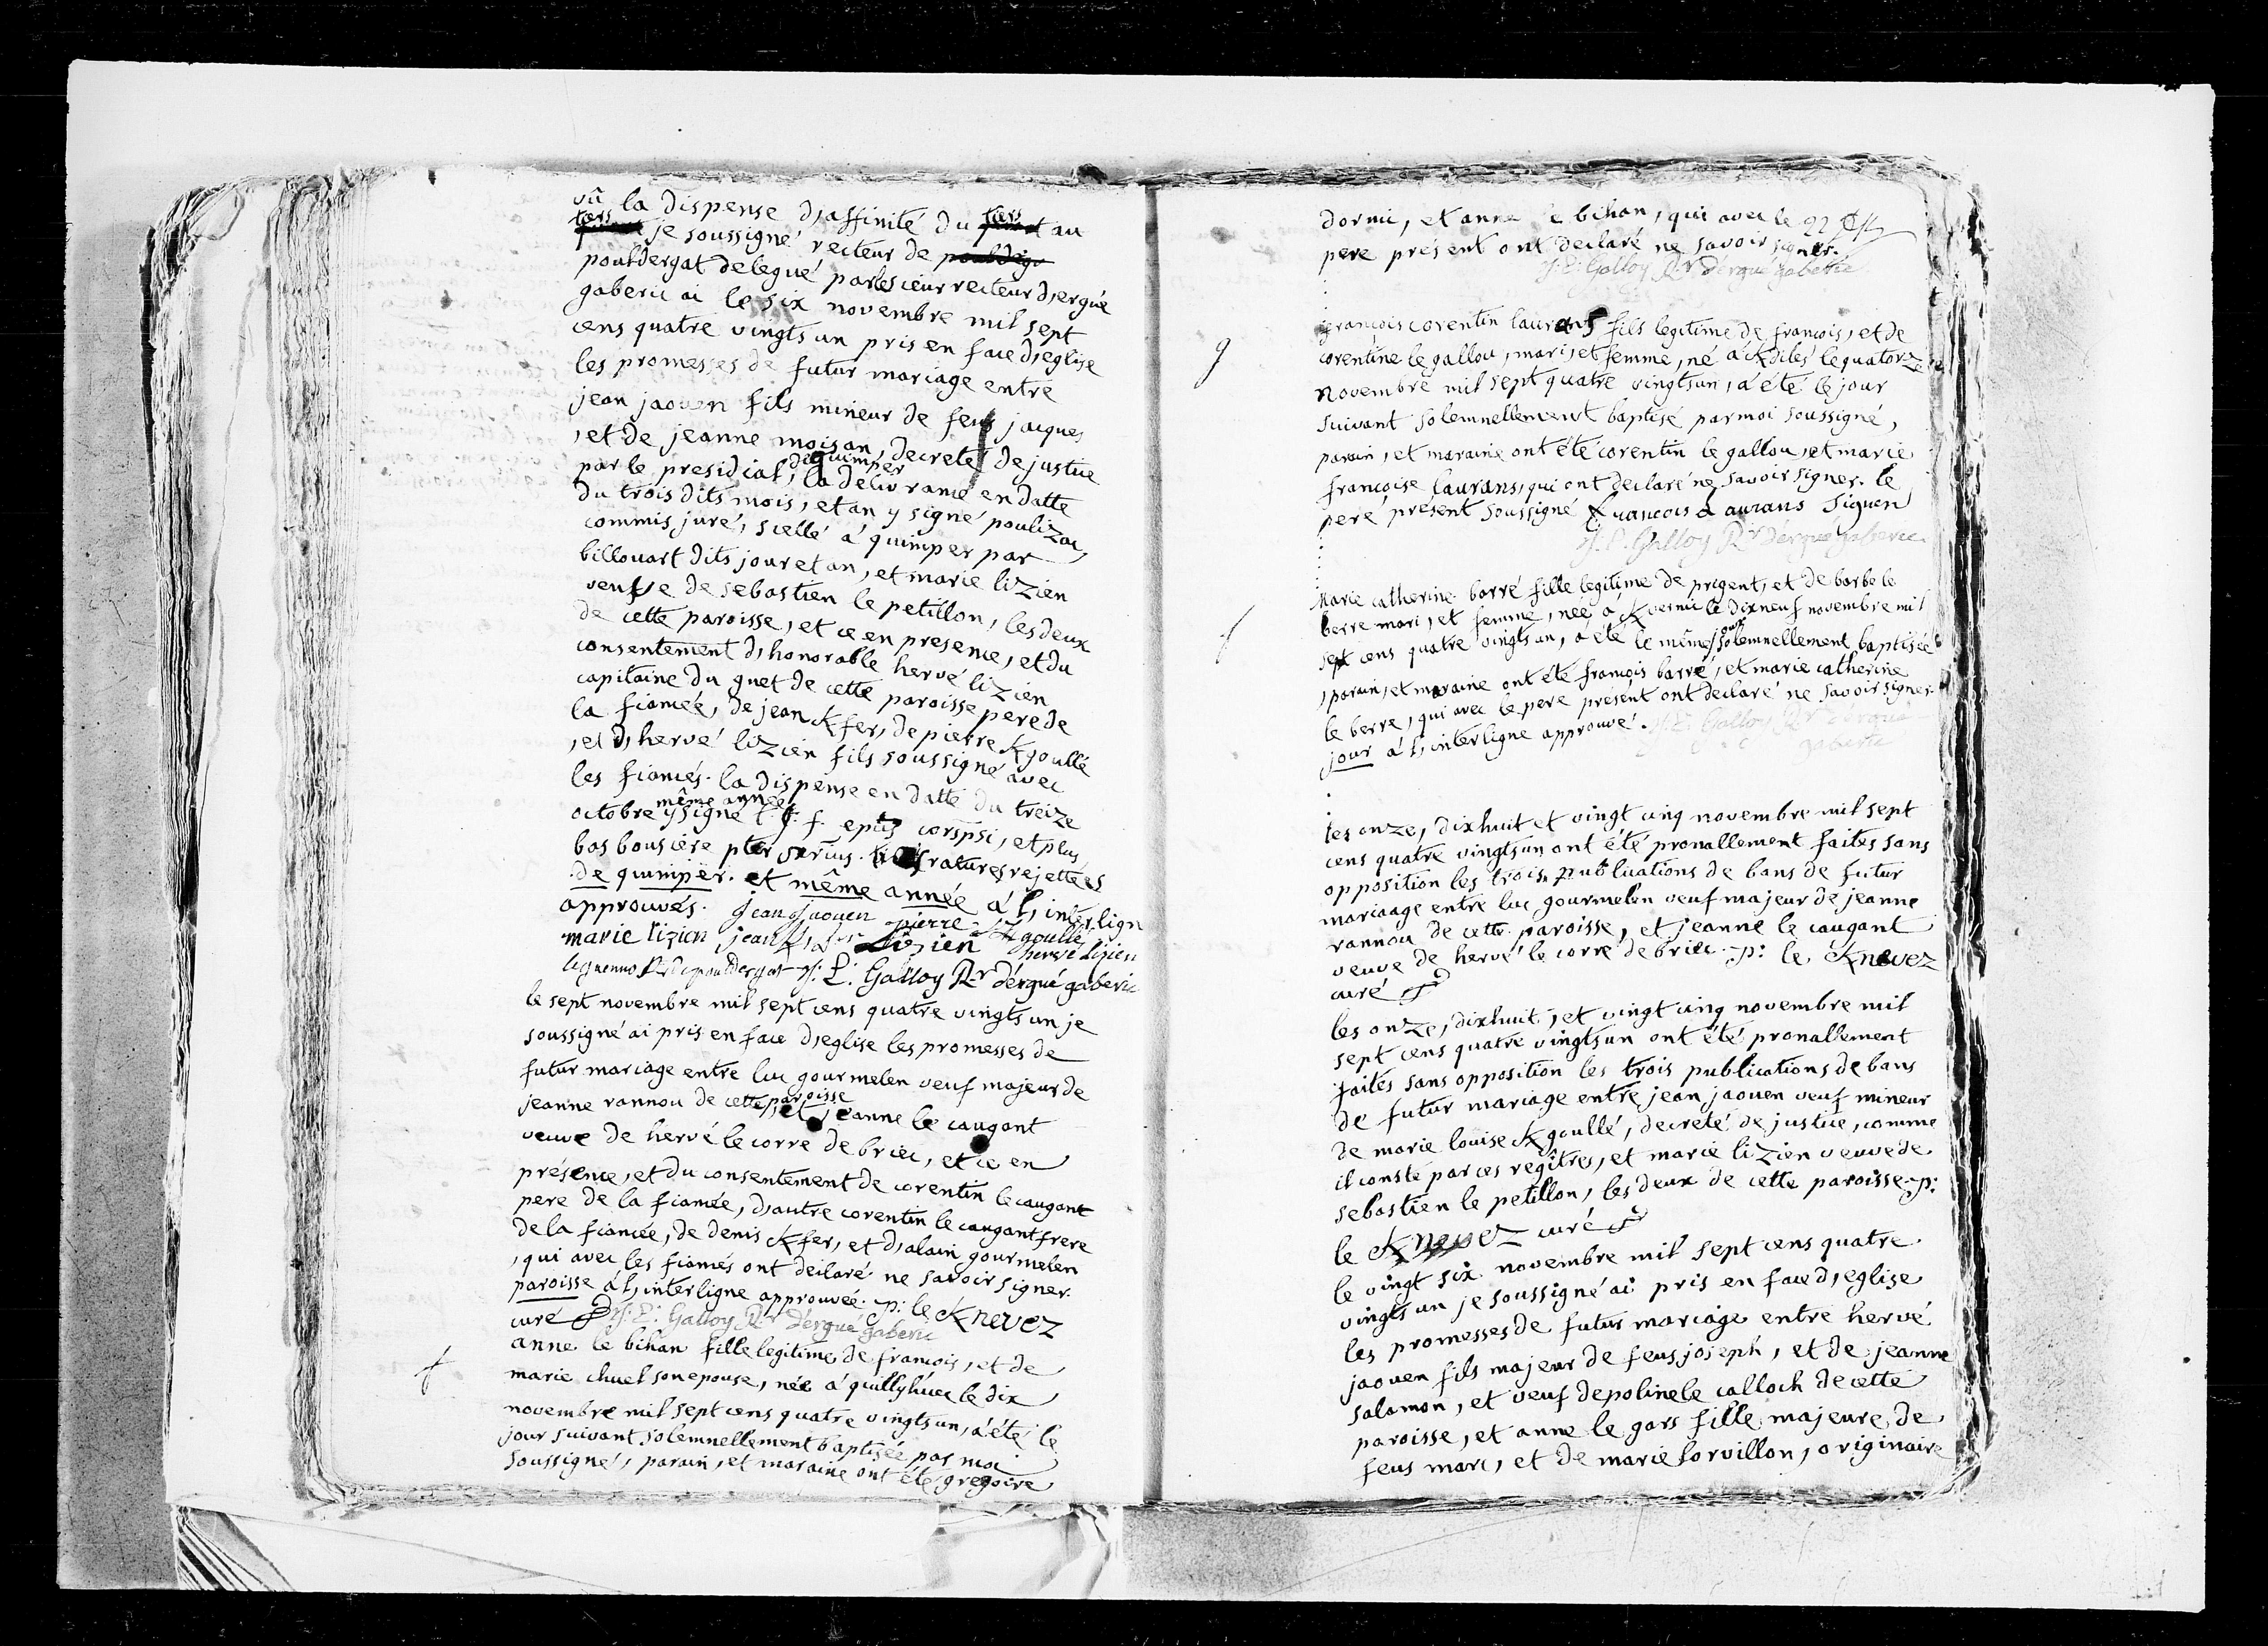 vû la dispense d,affinité du tiers au
tiers je soussigné recteur de pouldige
pouldergat delegué par le sieur recteur d,ergué
gaberic ai le six novembre mil sept
cens quatre vingts un pris en face d,eglise
les promesses de futur mariage entre
jean jaouen fils mineur de feu jacques
, et de jeanne moisan, decreté de justice
par le presidial de quimper, la délivrance en datte
du trois dits mois, et an y signé poulizac
commis juré, scellé á quimper par
billouart dits jour et an, et marie lizien
veufve de sebastien le petillon, les deux
de cette paroisse, et ce en presence, et du
consentement d,honorable hervé lizien
capitaine du guet de cette paroisse pere de
la fiancée, de jean Kfer, de pierre Kgoullé
, et d,hervé lizien fils soussigné avec
les fiancés. la dispense en datte du treize
octobre même année y signé t. f. f. epûs corspsi, et plus
bas bousiere pter srrius. trois ratures rejettées
de quimper. et même année á l,interlign
approuvés. jean jaouen pierre Kgoullé
marie lizien jean Kfer Lizien herve lizien
le guenno Rr de pouldergat J: E: Galloy Rr d'ergué gaberic
le sept novembre mil sept cens quatre vingts un je
soussigné ai pris en face d,eglise les promesses de
futur mariage entre luc gourmelen veuf majeur de
jeanne rannou de cette paroisse, et jeanne le caugant
veuve de hervé le corre de briec, et ce en
présence, et du consentement de corentin le caugant
pere de la fiancée, d,autre corentin le caugant frere
de la fiancée, de denis Kfer, et d,alain gourmelen
, qui avec les fiancés ont declaré ne savoir signer.
paroisse á l,interligne approuvée. p: le Knevez
curé J: E: Galloy Rr d'ergué gaberic
anne le bihan fille legitime de francois, et de
f
marie chuel son epouse, née á quillyhuec le dix
novembre mil sept cens quatre vingts un, á été le
jour suivant solemnellement baptisée par moi
soussigné, parain, et maraine ont été gregoire
dormic, et anne le bihan, qui avec le
pere présent ont declaré ne savoir signer.
J: E: Galloy Rr d'ergué gaberic
françois corentin laurans fils legitime de françois, et de
g
corentine le gallou, mari, et femme, né á Kdilés le quatorze
novembre mil sept quatre vingts un, á été le jour
suivant solemnellement baptisé par moi soussigné,
parain, et maraine ont été corentin le gallou, et marie
françoise laurans, qui ont declaré ne savoir signer. le
pere présent soussigné francois Laurans Siguen
J: E: Galloy Rr d'ergué gaberic
Marie catherine barré fille legitime de prigent, et de barbe le
berre mari, et femme, née á Kvernic le dix neuf novembre mil
f
sept cens quatre vingts un, á été le même jour solemnellement baptisée
, parain, et maraine ont été françois barré, et marie catherine
le berre, qui avec le pere présent ont declaré ne savoir signer.
jour á l,interligne approuvé. J: E: Galloy Rr d'ergué
gaberic
les onze, dixhuit et vingt cinq novembre mil sept
cens quatre vingts un ont été pronallement faites sans
opposition les trois publications de bans de futur
mariaage entre luc gourmelen veuf majeur de jeanne
rannou de cette paroisse, et jeanne le caugant
veuve de hervé le corre de briec. p: le Knevez
curé
les onze, dixhuit, et vingt cinq novembre mil
sept cens quatre vingts un ont été pronallement
faites sans opposition les trois publications de bans
de futur mariage entre jean jaouen veuf mineur
de marie louise Kgoullé, decreté de justice, comme
il conste par ces regîtres, et marie lizien veuve de
sebastien le petillon, les deux de cette paroisse. p:
le Knevez curé
le vingt six novembre mil sept cens quatre
vingts un je soussigné ai pris en face d,eglise
les promesses de futur mariage entre hervé
jaouen fils majeur de feus joseph, et de jeanne
salomon, et veuf de poline le calloch de cette
paroisse, et anne le gars fille majeure de
feus marc, et de marie lorvillon, originaire